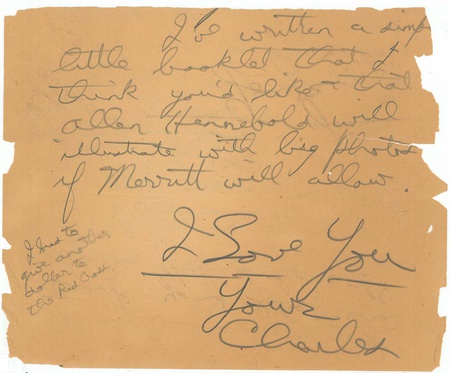 I've written a simp
little booklet that I
think you'd like & that
Allen Hennebold will
illustrate with big photos
if Merritt will allow.
I Love You
Yours
Charles
I had to
give another
dollar to
the Red Cross.